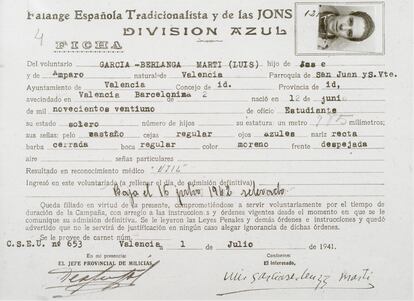 Falange Española Tradicionalista y de las JONS
DIVISION AZUL
4
FICHA
Del voluntario GARCIA-BERLANGA MARTI (LUIS) hijo de Jose
y de Amparo natural de Valencia Parroquia de San Juan y S. Vte.
Ayuntamiento de Valencia Concejo de id. Provincia de id,
avecindado en Valencia Barcelonina 2 nació en 12 de junio
de mil novecientos ventiuno de oficio Estudiante
su estado soltero su estatura: un metro milímetros;
sus señas: pelo castaño cejas regular ojos azules nariz recta
barba cerrada boca regular color moreno frente despejada
aire señas particulares
Resultado en reconocimiento médico "UTIL"
Ingresó en este voluntariado (a rellenar el día de admisión definitiva)
Baja el 16 julio 1942 relevado
Queda filiado en virtud de presente, comprometiéndose a servir voluntariamente por el tiempo de
duración de la Campaña, con arreglo a las instrucciones y órdenes vigentes desde el momento en que se le
comunique su admisión definitiva. Se le leyeron las Leyes Penales y demás órdenes e instrucciones y quedó
advertido que no le servirá de justificación en ningún caso alegar ignorancia de dichas órdenes.
Se le provee de carnet núm.
C.S.E.U. nº 653 Valencia, 1 Julio de 1941.
En mi presencia:
EL JEFE PROVINCIAL DE MILICIAS,
El interesado,
Luis García-Berlanga Martí